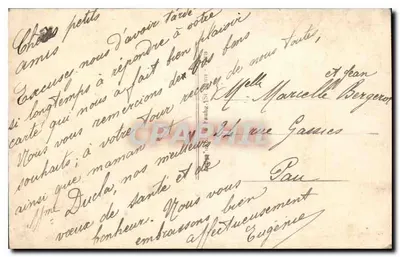 Chers petits
amis
Excusez-nous d'avoir tardé
si longtemps à répondre à votre
carte qui nous a fait bien plaisir
Nous vous remercions des bons
souhaits; à votre tour recevez de nous toute,
ainsi que maman et
Ducla, nos meilleurs
vœux de santé et de
bonheur. Nous vous
embrassons bien
affectueusement
Eugénie
et Jean
Melle Marcelle Bergerot
rue Gassies
Pau